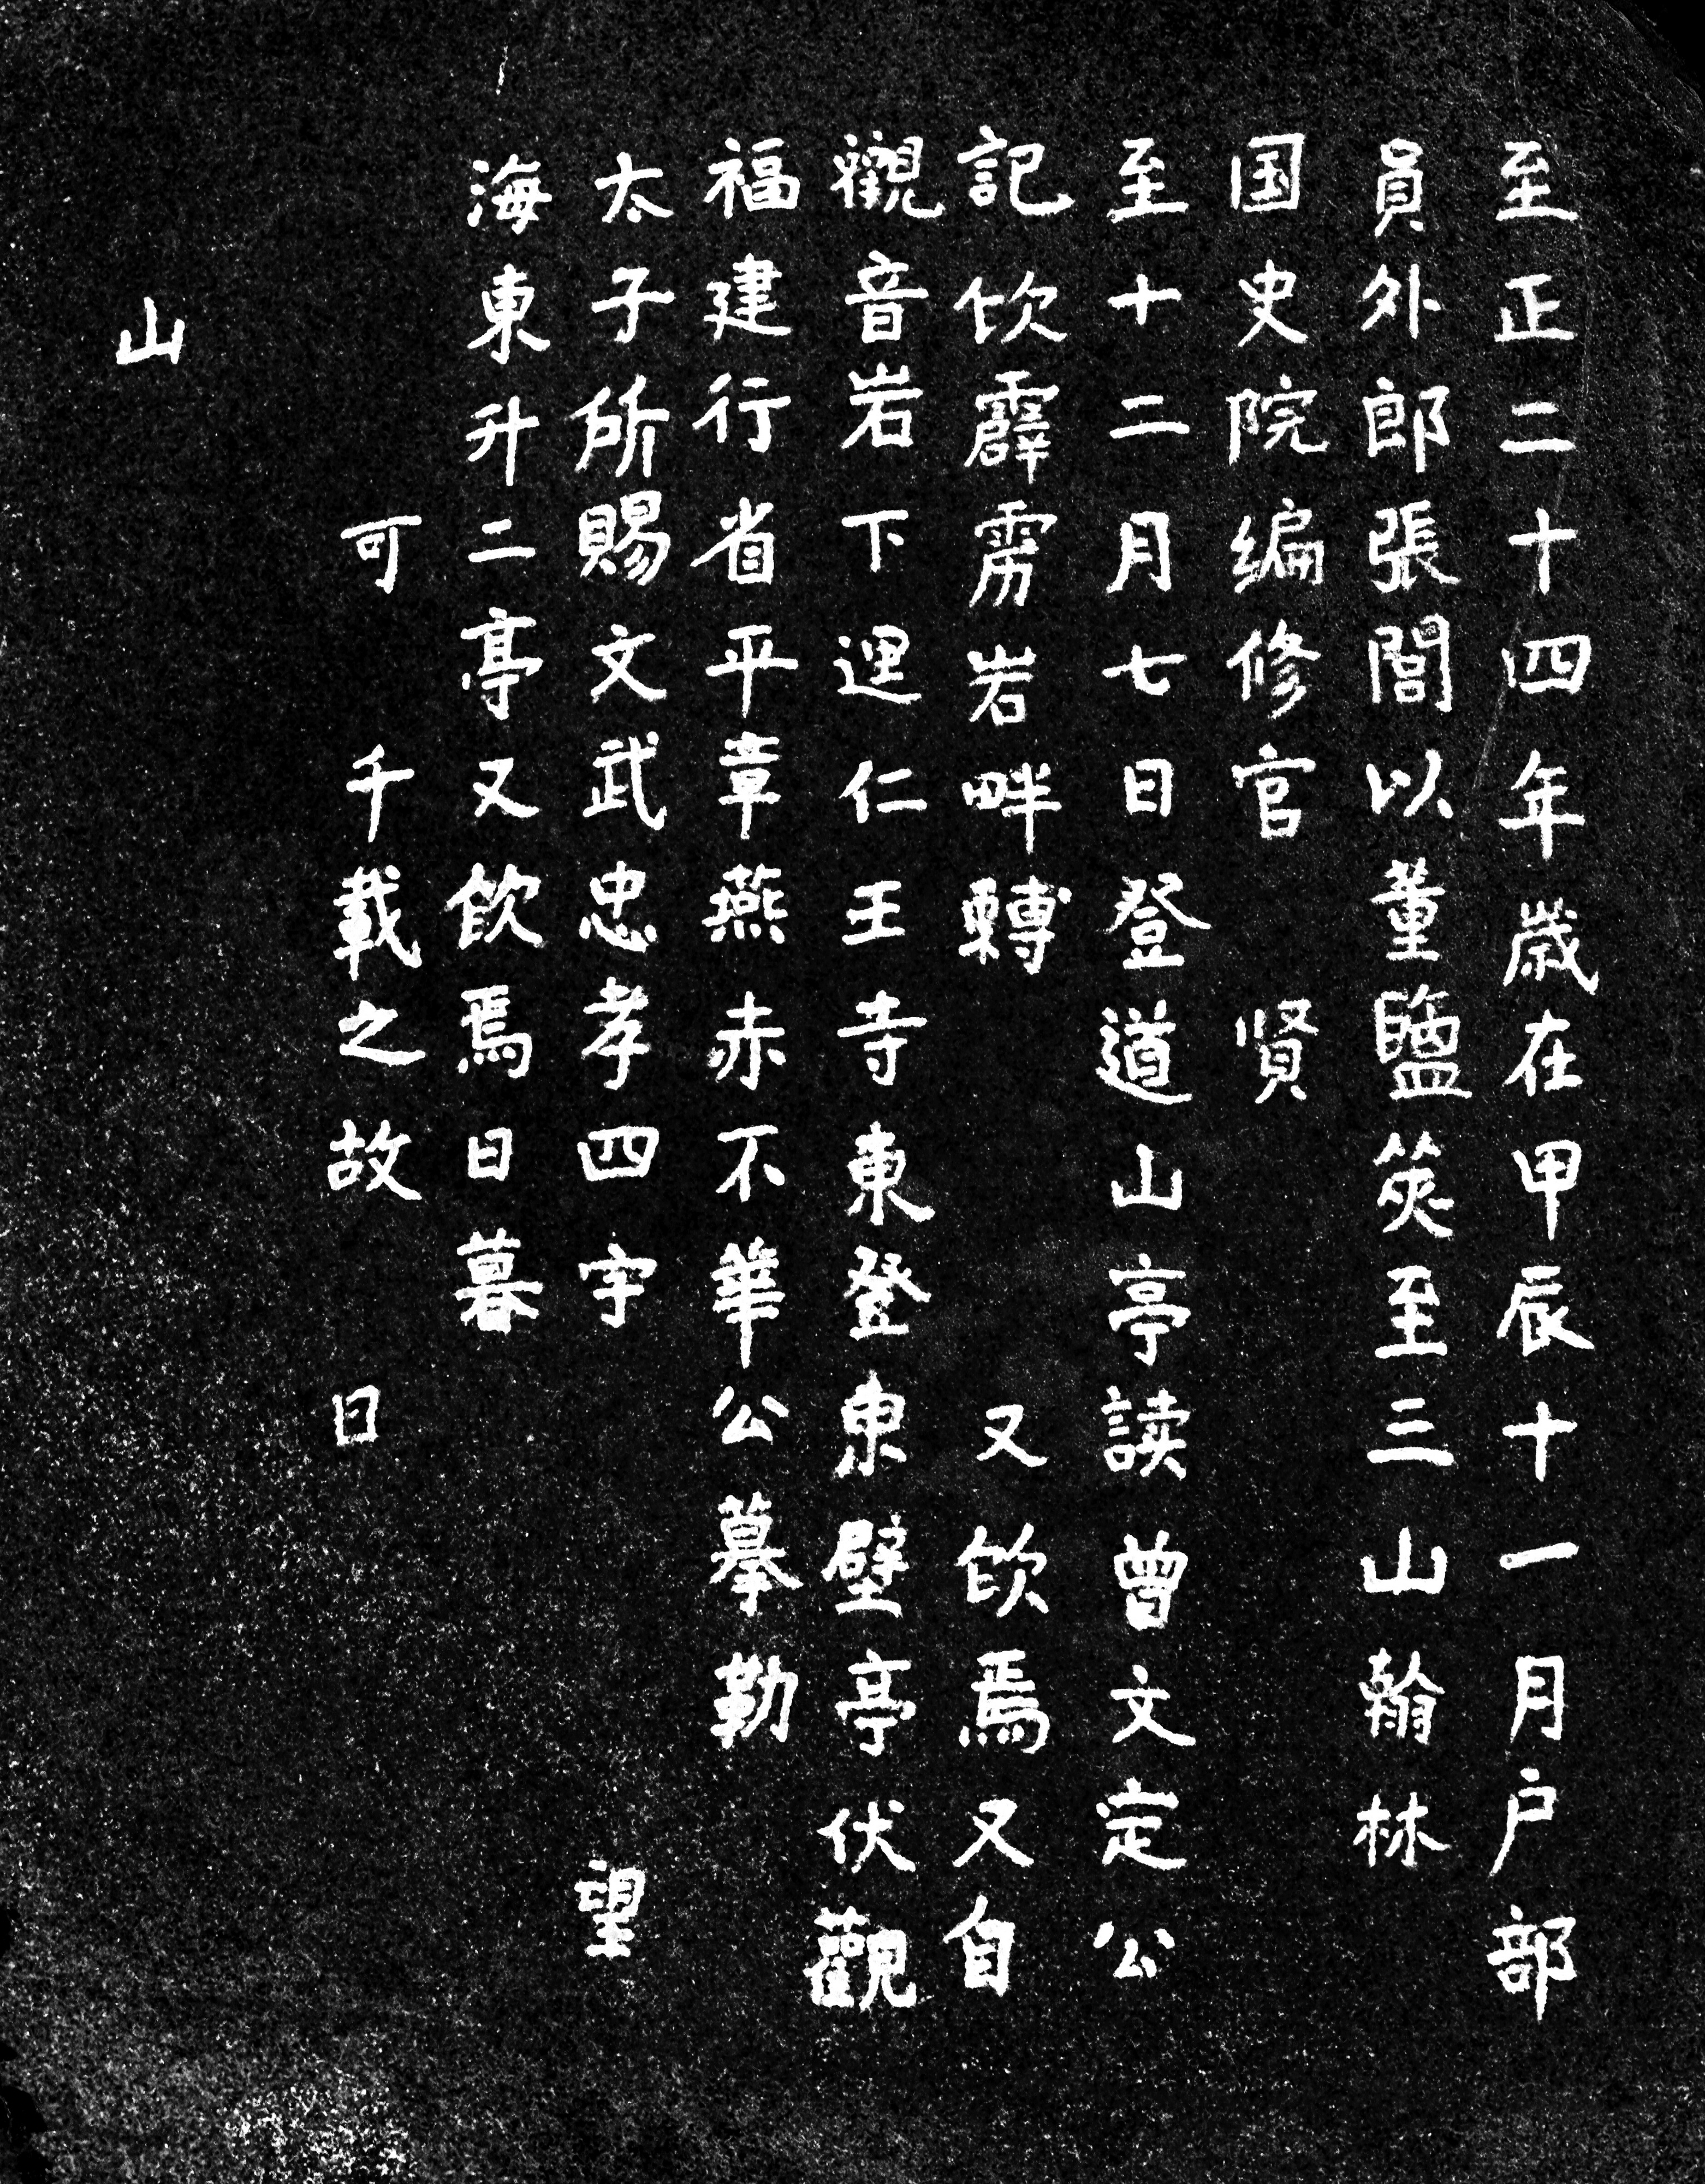 至正二十四年歲在甲辰十一月户部
員外郎張閭以董鹽筴至三山翰林
国史院编修官 賢
至十二月七日登道山亭读曾文定公
記饮霹雳岩畔轉 又飲焉又自
觀音岩下 仁王寺東登東壁亭伏觀
福建行省平章燕赤不華公摹勒
太子所賜文武忠孝四字 望
海東升二亭又飲焉日暮
可 千載之故 日
山